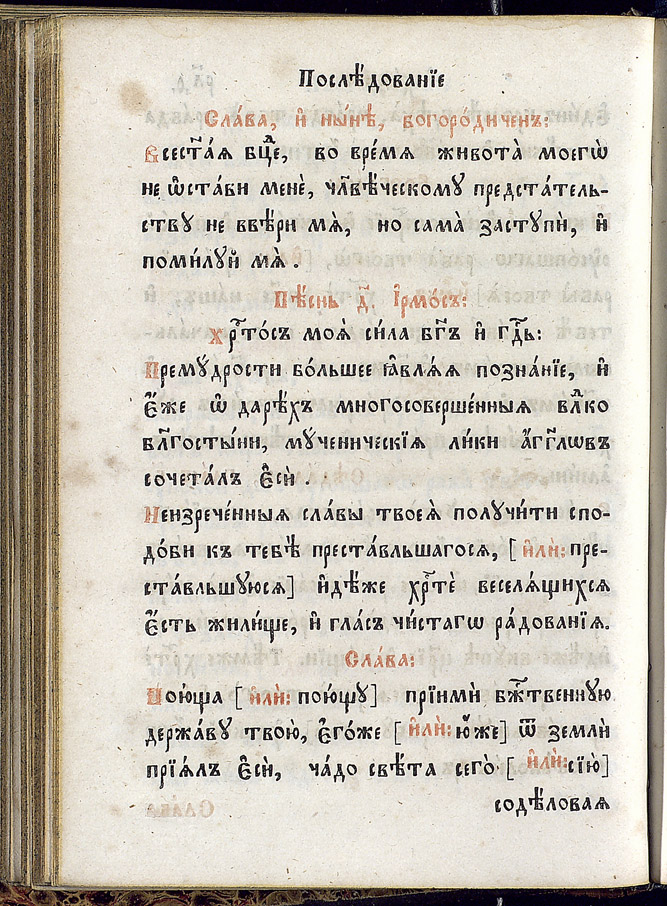 Послѣ́дованїе
Сла́ва, и҆ ны́нѣ, богоро́диченъ:
Всест҃а́ѧ бц҃е, во вре́мѧ живота̀ моегѡ̀
не ѡ҆ста́ви менѐ, чл҃вѣ́ческомꙋ предста́тель-
ствꙋ не ввѣ́ри мѧ̀, но сама̀ застꙋпѝ, и҆
поми́лꙋй мѧ̀ .
Пѣ́снь д҃. І҆рмо́съ:
Хрⷭ҇то́съ моѧ̀ си́ла бг҃ъ и҆ гдⷭ҇ь:
Премꙋ́дрости бо́льшее ꙗ҆влѧ́ѧ позна́нїе, и҆
є҆́же ѡ҆ дарѣ́хъ многосоверше́нныѧ влⷣко
бл҃госты́ни, мꙋ́ченическїѧ ли́ки а҆́гг҃лѡвъ
сочета́лъ є҆сѝ .
Неизрече́нныѧ сла́вы твоеѧ̀ полꙋчи́ти спо-
до́би къ тебѣ̀ преста́вльшагосѧ, [ и҆лѝ: пре-
ста́вльшꙋюсѧ] и҆дѣ́же хрⷭ҇тѐ веселѧ́щихсѧ
є҆́сть жили́ще, и҆ гла́съ чи́стагѡ ра́дованїѧ.
Сла́ва:
Пою́ща [ и҆лѝ: пою́щꙋ] прїимѝ бжⷭ҇твеннꙋю
держа́вꙋ твою̀, є҆го́же [ и҆лѝ: ю҆́же] ѿ землѝ
прїѧ́лъ є҆сѝ, ча́до свѣ́та сего̀ [ и҆лѝ: сїю̀]
содѣ́ловаѧ